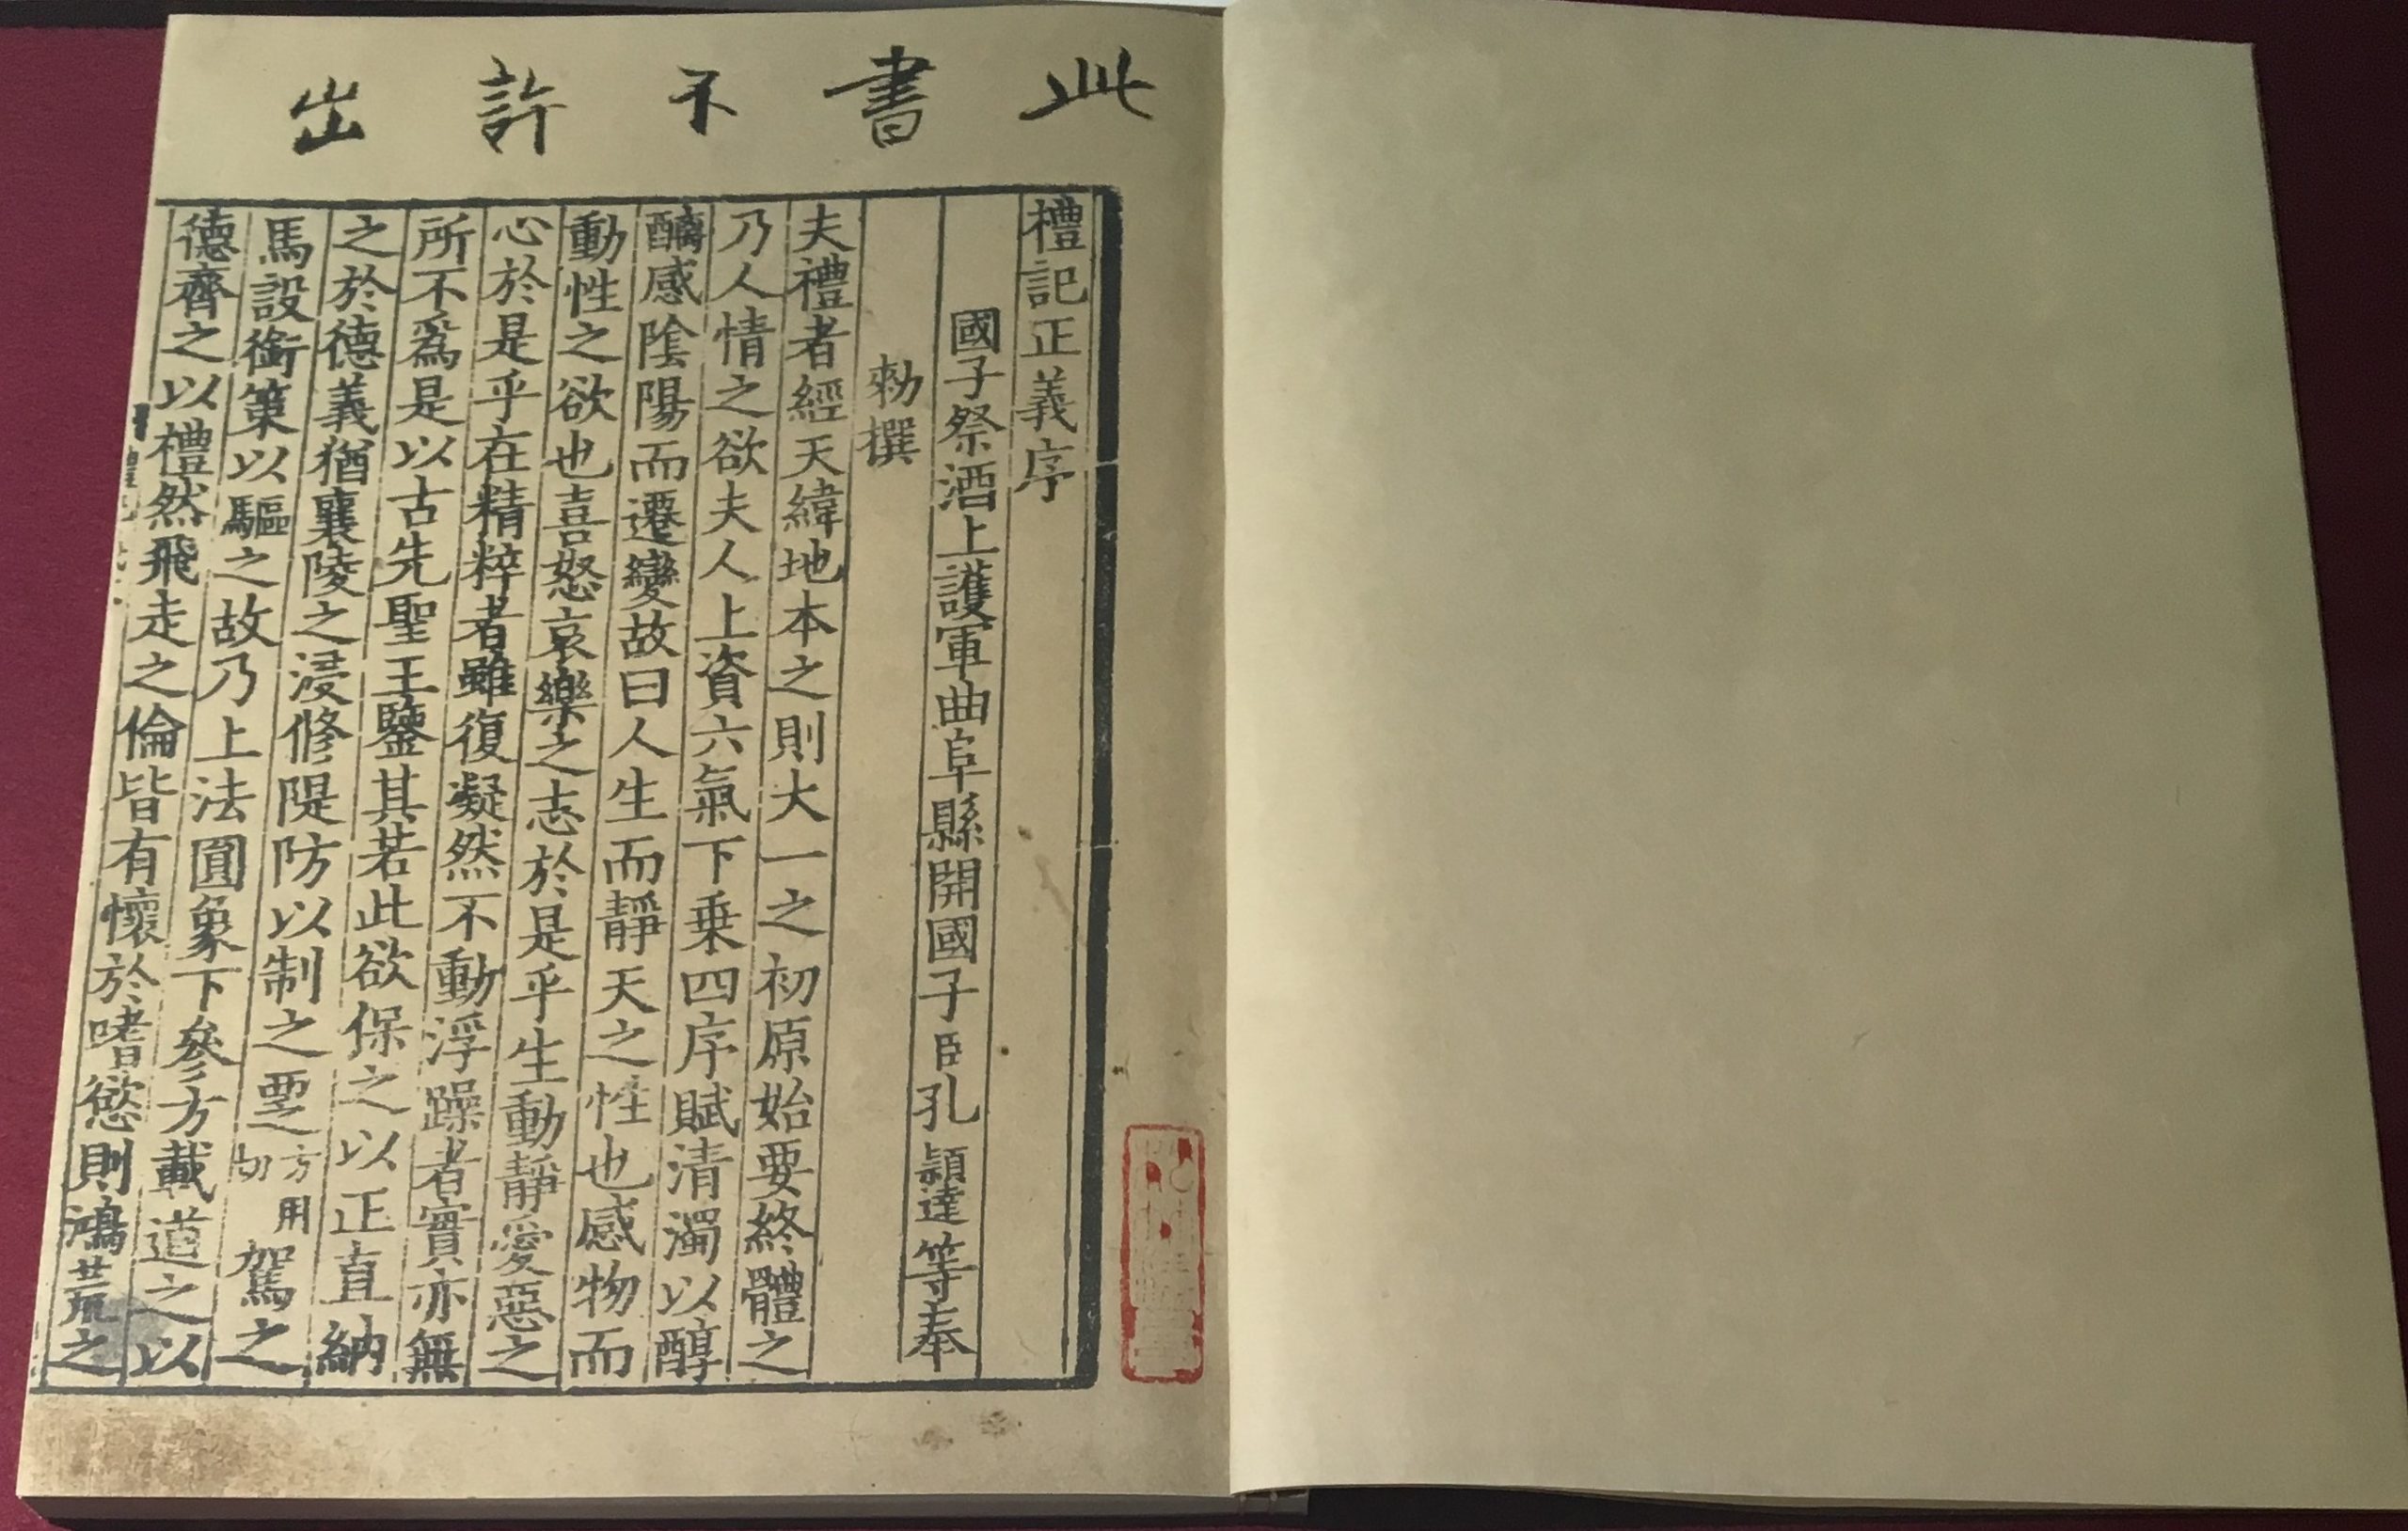 此書不許出
禮記正義序
國子祭酒上護軍曲阜縣開國子臣孔穎達等奉
勑撰
夫禮者經天緯地本之則大一之初原始要終體之
乃人情之欲夫人上資六氣下乗四序賦清濁以醇
醨感陰陽而遷變故曰人生而靜天之性也感物而
動性之欲也喜怒哀樂之志於是乎生動靜愛惡之
心於是乎在精粹者雖復凝然不動浮躁者實亦無
所不爲是以古先聖王鑒其若此欲保之以正直納
之於德義猶襄陵之浸修隄防以制之覂方用切駕之
馬設銜策以驅之故乃上法圓象下參方載道之以
德齊之以禮然飛走之倫皆有懷於嗜慾則鴻荒之